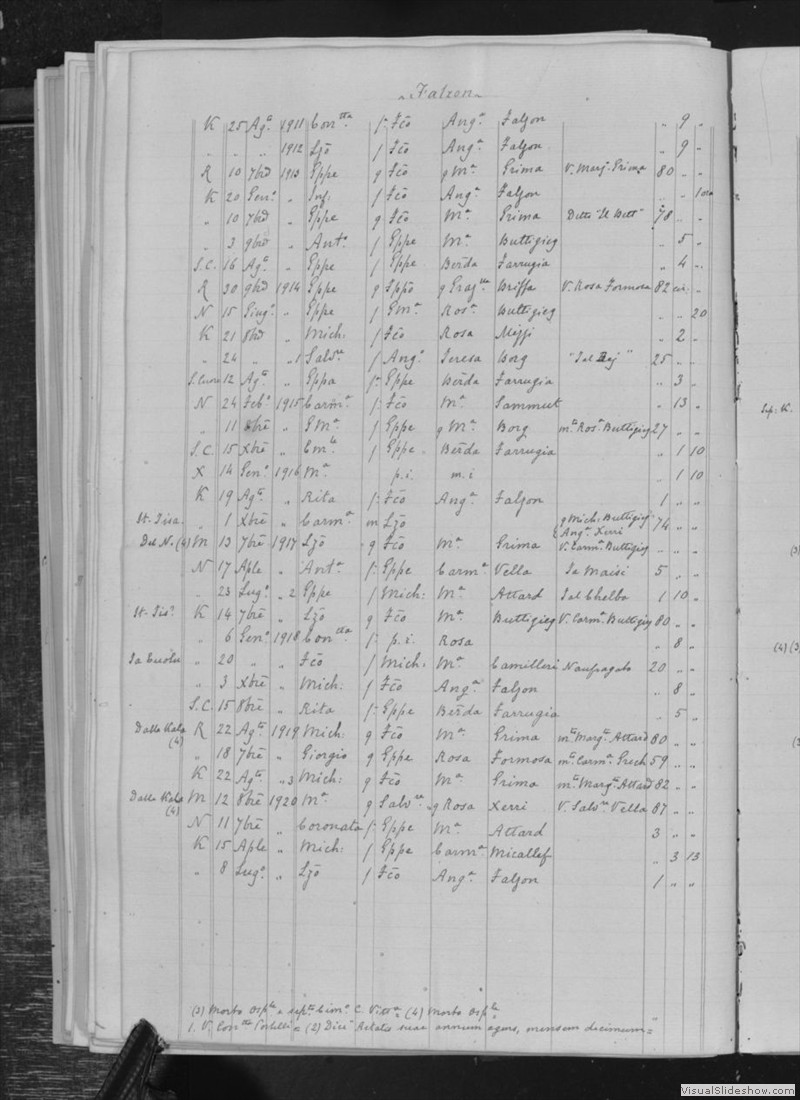 Falzon
K 25 Agº 1911 Contta f. Fcō Angª Falzon „ 9 „
„ „ „ 1912 Lzō f Fcō Angª Falzon „ 9 „
R 10 7bre 1913 Gppe g Fcō g Mª Grima V. Margª Grima 80 „ „
K 20 Genº „ Inf. f Fcō Angª Falzon „ „ 1ora
„ 10 7bre „ Gppe g Fcō Mª Grima Detto "il Bett" 78 „ „
„ 3 9bre „ Antº f Gppe Mª Buttigieg „ 5 „
S.C. 16 Agº „ Gppe f Gppe Berda Farrugia „ 4 „
R 30 9bre 1914 Gppe g Gppe g Grazlla Briffa V. Rosa Formosa 82 cir: „
N 15 Giugº „ Gppe f Gmª Rosª Buttigieg „ „ 20
K 21 8bre „ Mich: f Fcō Rosa Mizzi „ 2 „
„ 24 „ „ 1 Salvre f Angº Teresa Borg 25 „ „
12 Agº „ Gppa f. Gppe Berda Farrugia „ 3 „
N 24 Febº 1915 Carmª f. Fcō Mª Sammut „ 13 „
„ 11 8bre „ Gmª f Gppe g Mª Borg mª Rosª Buttigieg 27 „ „
S.C. 15 Xbre „ Emle f Gppe Berda Farrugia „ 1 10
X 14 Genº 1916 Mª p.i. m.i „ 1 10
K 19 Agº „ Rita f. Fcō Angª Falzon 1 „ „
„ 1 Xbre „ Carmª m Lzō g Mich: Buttigieg 74 „ „
Angª Xerri
Del N. (4) M 13 7bre 1917 Lzō g Fcō Mª Grima V. Carmª Buttigieg „ „ „
N 17 Aple „ Antª f. Gppe Carmª Vella Ta Maisi 5 „ „
„ 23 Lugº „ 2 Gppe f Mich: Mª Attard Tal Chelba 1 10 „
K 14 7bre „ Lzō g Fcō Mª Buttigieg V. Carmª Buttigieg 80 „ „
„ 6 Genº 1918 Contta f. p.i. Rosa „ 8 „
„ 20 „ „ Fcō f Mich: Mª Camilleri Naufragato 20 „ „
„ 3 Xbre „ Mich: f Fcō Angª Falzon „ 8 „
S.C. 15 8bre „ Rita f. Gppe Berda Farrugia „ 5 „
Dalla Kala R 22 Agº 1919 Mich: g Fcō Mª Grima mº Margª Attard 80 „ „
(4)
„ 18 7bre „ Giorgio g Gppe Rosa Formosa mº Carmª Grech 59 „ „
K 22 Agº „ 3 Mich: g Fcō Mª Grima mº Margª Attard 82 „ „
Dalla Kala M 12 8bre 1920 Mª g Salvre g Rosa Xerri V. Salvre Vella 87 „ „
(4)
N 11 7bre „ Coronata f. Gppe Mª Attard 3 „ „
K 15 Aple „ Mich: f Gppe Carmª Micallef „ 3 13
„ 8 Lugº „ Lzō f Fcō Angª Falzon 1 „ „
(3) Morbo Osple C. Vittª (4) Morbo Osple
1. V. Contta (2) Dice Aetatis suae annum agens, mensem decimum =
VisualSlideshow.com